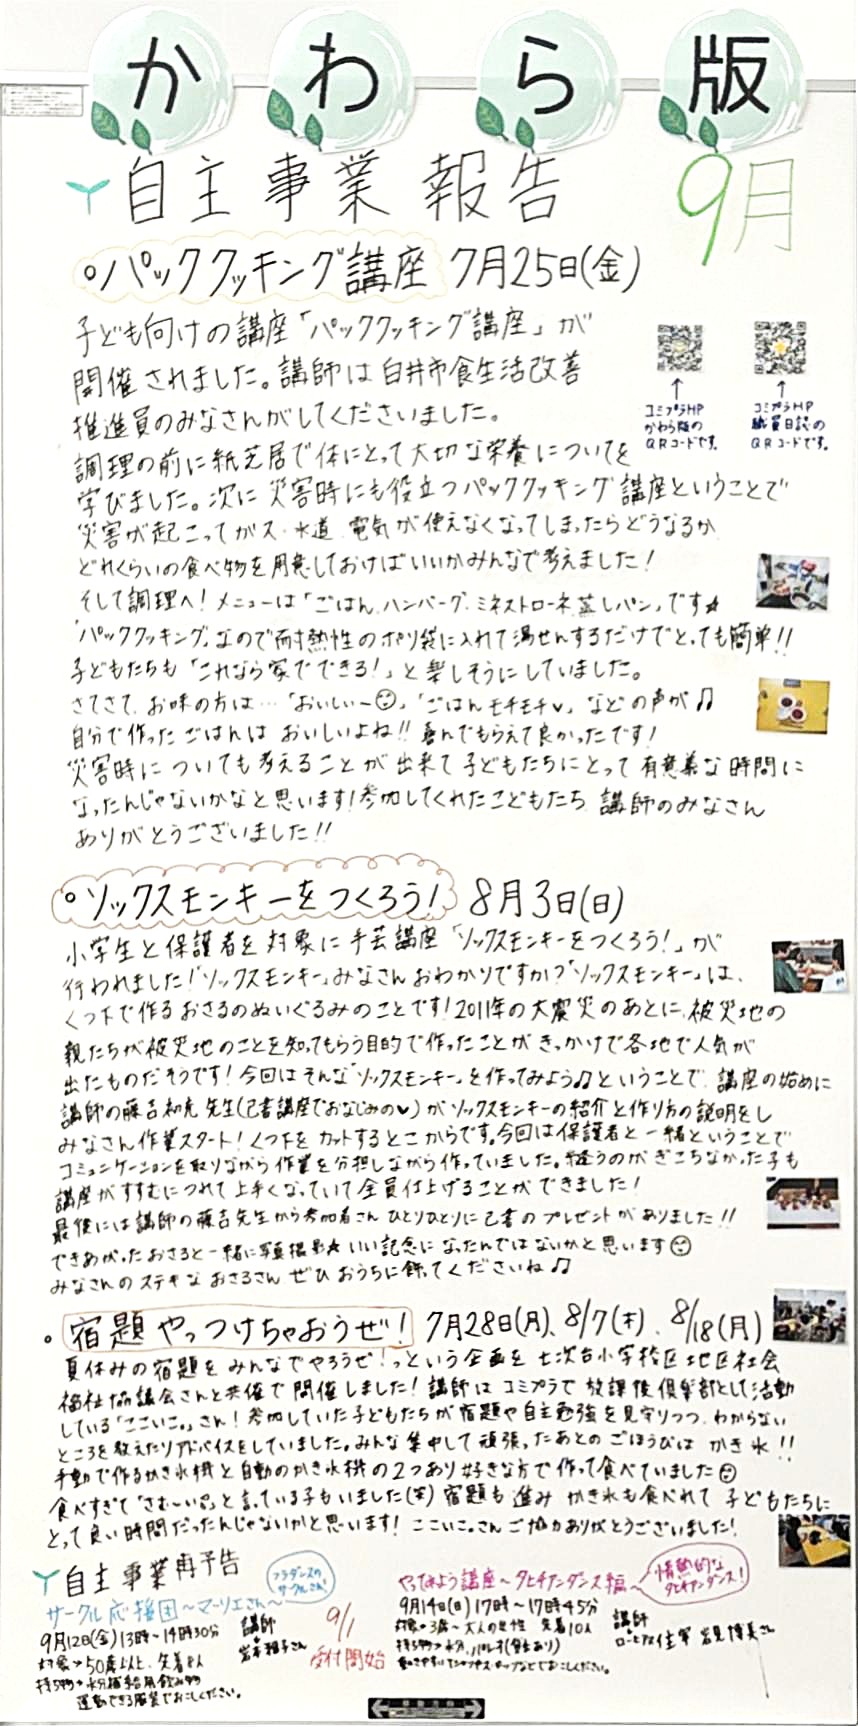 かわら版
自主事業報告 9月
○パッククッキング講座 7月25日(金)
子ども向けの講座「パッククッキング講座」が
開催されました。講師は白井市食生活改善
推進員のみなさんがしてくださいました。
コミプラHP
かわら版の
QRコードです。
コミプラHP
職員日誌の
QRコードです。
調理の前に紙芝居で体にとって大切な栄養についてを
学びました。次に災害時にも役立つパッククッキング講座ということで
災害が起こってガス・水道、電気が使えなくなってしまったらどうなるか、
どれくらいの食べ物を用意しておけばいいかみんなで考えました!
そして調理へ!メニューは「ごはん、ハンバーグ、ミネストローネ、蒸しパン」です☆
「パッククッキング」なので耐熱性のポリ袋に入れて湯せんするだけでとっても簡単!!
子どもたちも「これなら家でできる!」と楽しそうにしていました。
さてさて、お味の方は…「おいしい〜☺」「ごはんモチモチ♥」などの声が♫
自分で作ったごはんはおいしいよね!!喜んでもらえて良かったです!
災害時についても考えることが出来て子どもたちにとって有意義な時間に
なったんじゃないかなと思います!参加してくれたこどもたち、講師のみなさん
ありがとうございました!!
○ソックスモンキーをつくろう! 8月3日(日)
小学生と保護者を対象に手芸講座「ソックスモンキーをつくろう!」が
行われました!「ソックスモンキー」みなさんおわかりですか!?「ソックスモンキー」は、
くつ下で作るおさるのぬいぐるみのことです!2011年の大震災のあとに、被災地の
親たちが被災地のことを知ってもらう目的で作ったことがきっかけで各地で人気が
出たものだそうです!今回はそんな「ソックスモンキー」を作ってみよう♫ということで、講座の始めに
講師の藤吉和克先生(己書講座でおなじみの♥)がソックスモンキーの紹介と作り方の説明をし
みなさん作業スタート!くつ下をカットするとこからです。今回は保護者と一緒ということで
コミュニケーションを取りながら作業を分担しながら作っていました。縫うのがぎこちなかった子も
講座がすすむにつれて上手くなっていて全員仕上げることができました!
最後には講師の藤吉先生から参加者さんひとりひとりに己書のプレゼントがありました!!
できあがったおさると一緒に写真撮影☆いい記念になったんではないかと思います☺
みなさんのステキなおさるさん、ぜひおうちに飾ってくださいね♫
○宿題やっつけちゃおうぜ! 7月28日(月)、8/7(木)、8/18(月)
夏休みの宿題をみんなでやろうぜ!っという企画を七次台小学校区地区社会
福祉協議会さんと共催で開催しました!講師はコミプラで放課後倶楽部として活動
している「ここいこ。」さん!参加していた子どもたちが宿題や自主勉強を見守りつつ、わからない
ところを教えたりアドバイスをしていました。みんな集中して頑張ったあとのごほうびはかき氷!!
手動で作るかき氷機と自動のかき氷機の2つあり好きな方で作って食べていました☺
食べすぎて「さむ〜い」と言っている子もいました(笑) 宿題も進みかき氷も食べれて子どもたちに
とって良い時間だったんじゃないかと思います!ここいこ。さんご協力ありがとうございました!
自主事業再予告
フラダンスの
サークルさん!
サークル応援団〜マーリエさん〜
9月12日(金)13時〜14時30分
対象→50歳以上、先着8人
持ち物→水分補給用飲み物
運動できる服装でおこしください。
講師
9/1
受付開始
やってみよう講座〜タヒチアンダンス編〜
情熱的な
タヒチアンダンス!
9月14日(日)17時〜17時45分
対象→3歳〜大人の女性 先着10人
持ち物→水分、パレオ(貸出あり)
講師